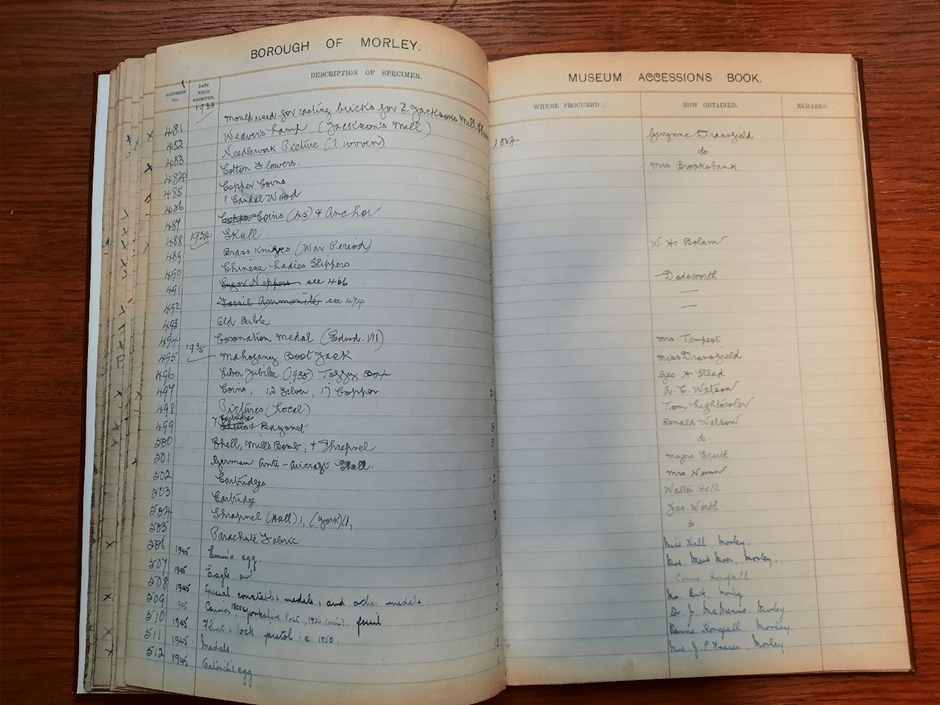 BOROUGH OF MORLEY.
ACCESSION NO.
DATE WHEN RECEIVED.
DESCRIPTION OF SPECIMEN.
1933
481 Mould used for casting bricks for E. Jackson's Mill
482 Weavers Lamp (Jackson's Mill)
483 Needlework Picture (? woven)
484 Cotton Flowers.
485 Copper Coins
486 ? Sandal Wood
487 Coins (45) & Anchor
488 1934 Skull
489 Brass Knives (War Period)
490 Chinese Ladies Slippers
491 Sugar Nippers see 466
492 Fossil Ammonite see 474
493 Old Bible
494 Coronation Medal (Edwd. VII)
495 1935 Mahogany Boot Jack
496 Silver Jubilee (1935) Toffee Box
497 Coins, 12 Silver, 17 Copper
498 Pictures (Local)
499 Bayonet
500 Shell, Mills Bomb, & Shrapnel
501 German Anti-Aircraft Shell.
502 Cartridges
503 Cartridge
504 Shrapnel (Hull) 1, (York) 1,
505 Parachute Fabric
506 1945 Emu's egg
507 1945 Eagle
508 1945 Special constable's medals, and other medals
509 Yorkshire Post,
510 1945 Flint-lock pistol c. 1850
511 1945 Medals.
512 1945 Ostrich's egg
MUSEUM ACCESSIONS BOOK.
WHERE PROCURED.
HOW OBTAINED.
REMARKS.
Gwynne Dransfield
do
Mrs Brooksbank
W. H. Bolam
Dodsworth
Mrs. Tempest
Miss Dransfield
Geo. A Steed
A. E. Watson
Tom Lightowler
Ronald Watson
do
Mrs. Nunn
Walter Hall
Jas. Worth
do
Miss Hall Morley.
Morley.
Morley
Dr. J. Morley.
Morley
Mrs. J. P. Morley